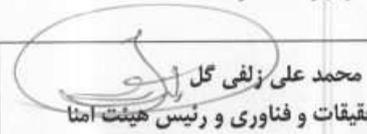 محمد علی زلفی گل
قیقات و فناوری و رئیس هیئت امنا